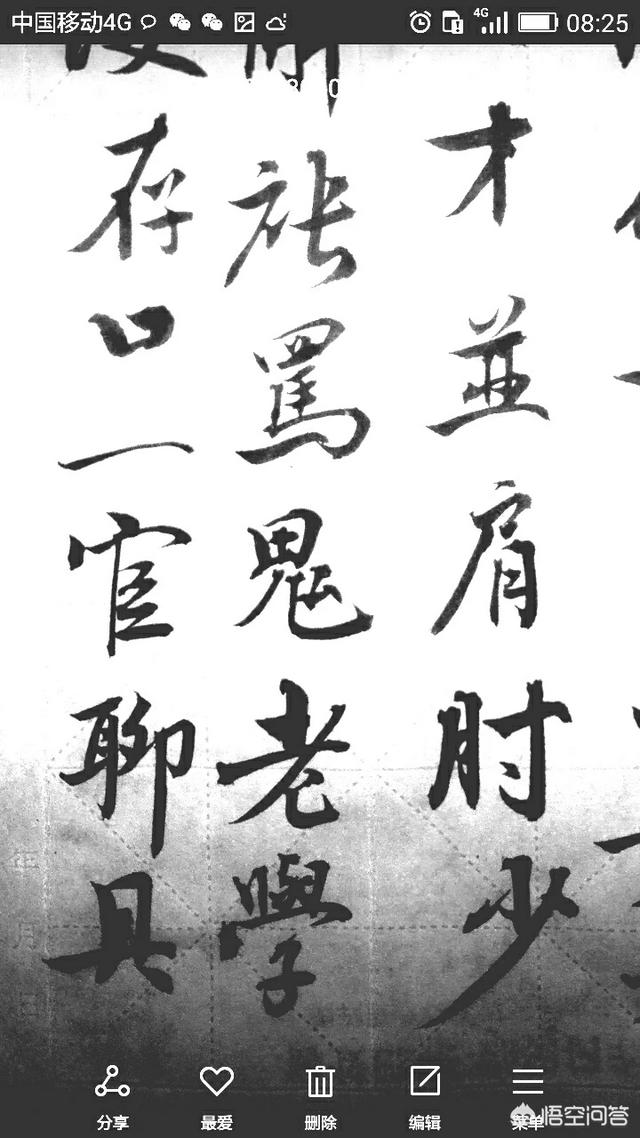 中国移动4G 4G 08:25
才並肩肘少
罵鬼老學
存口一宦聊具
年月日
分享 最爱 删除 编辑 菜单
悟空问答